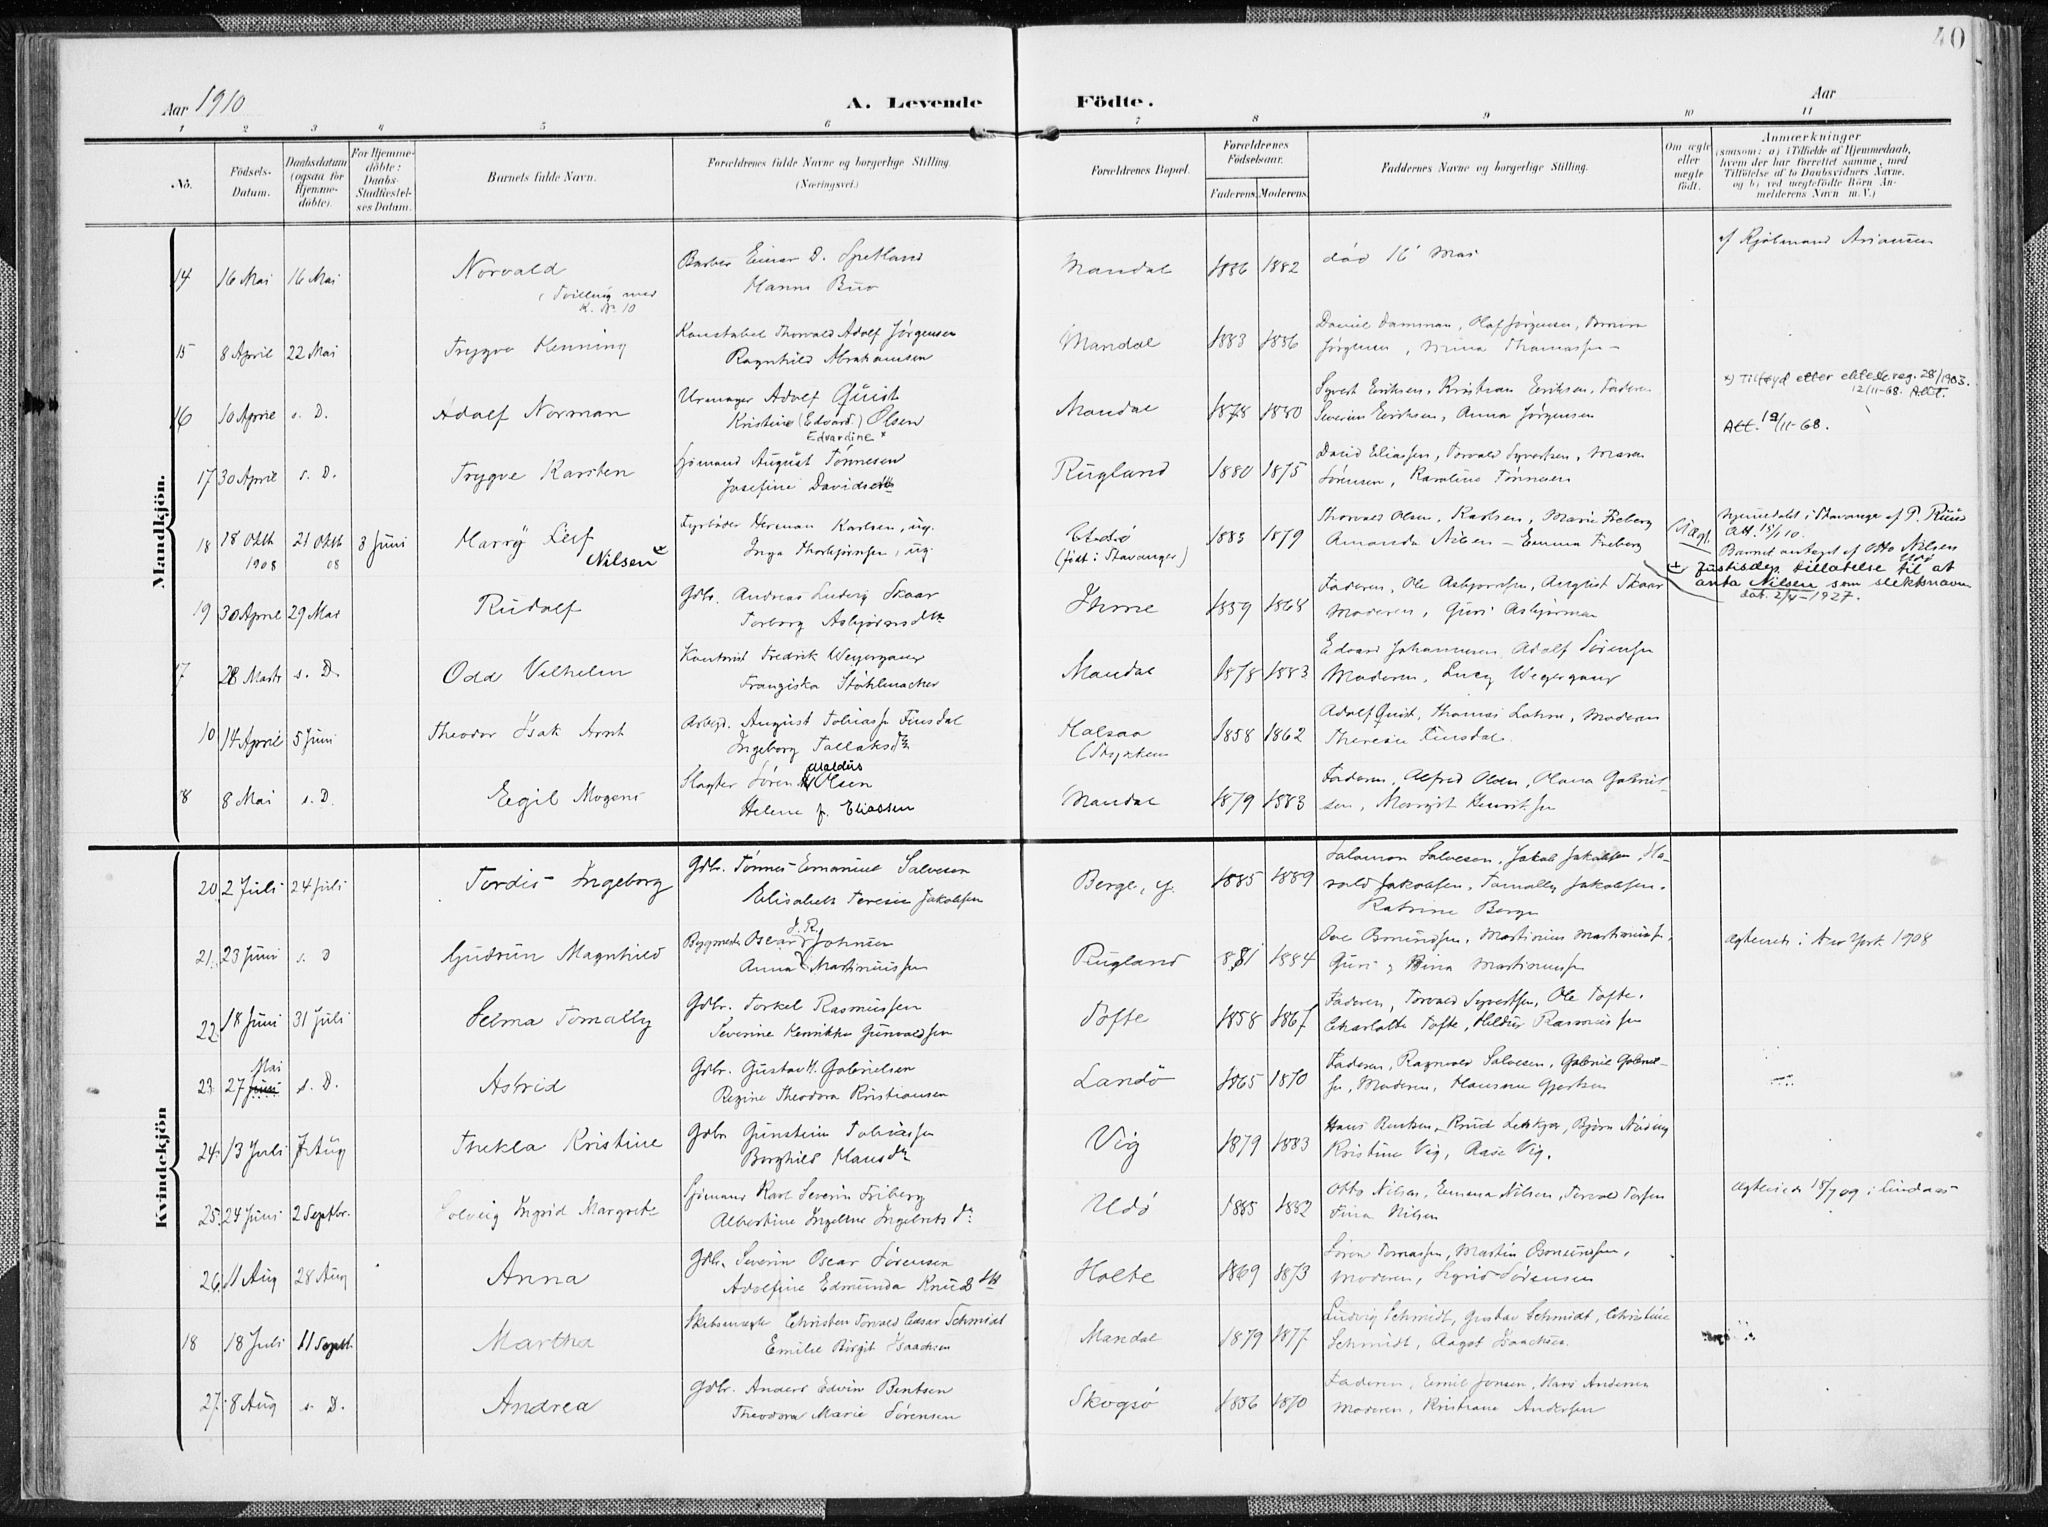 40
Aar 1910
A. Levende Födte.
Aar
1 2 3 4 5 6 7 8 9 10 11
No.
Födsels-Datum.
Daabsdatum (ogsaa for Hjemme-döbte).
For Hjemme-döbte: Daabs-Stadfæstel-ses Datum.
Barnets fulde Navn.
Forældrenes fulde Navne og borgerlige Stilling (Næringsvei.)
Forældrenes Bopæl.
Forældrenes Födselsaar.
Faderens. Moderens.
Faddernes Navne og borgerlige Stilling.
Om ægte eller uægte født.
Anmærkninger
(saasom: a) i Tilfælde af Hjemmedaab,
hvem der har forrettet samme, med
Tilföielse af to Daabsvidners Navne,
og b) ved uægtefödte Börn An-
melderens Navn m. V.)
Mandkjön.
14 16 Mai 16 Mai Norvald Barber Einar D. Spetland Mandal 1886 1882 død 16 Mai af
(Tvilling med K. No. 10 Hanna Buo
15 8 April 22 Mai Trygve Henning Konstabel Thorvald Adolf Jørgensen Mandal 1883 1886 Daniel Damman, Olaf Jørgensen,
Ragnhild Abrahamsen Jørgensen, Mina Thomassen
16 10 April s. D. Adolf Norman Urmager Adolf Quist Mandal 1878 1880 Syvert Eriksen, Kristian Eriksen, Faderen *) Tilføyd etter ekteskreg. 28/1903.
Kristine (Edvard.) Olsen Severin Eriksen, Anna Jørgensen 12/11-68. Att.
Edvardine * Att. 19/11-68.
17 30 April s. D. Trygve Karsten Sjømand August Tønnesen Rugland 1880 1875 David Eliassen, Torvald Syvertsen, Maren
Josefine Davidsen Sørensen, Karoline Tønnesen
18 18 Okth 1908 21 Okth 08 3 Juni Harry Leif Fyrbøder Herman Karlsen, ug. Udø 1883 1879 Thorvald Olsen, Karlsen, Marie Friberg Uægt. hjemmedøbt i Stavanger af P. Ruud
Nilsen * Inga Thorbjørnsen, ug. (født i Stavanger) Amanda Nilsen – Emma Friberg Att. 15/1 10.
Barnet antaget af Otto Nilsen Udø
Justisdep. tillatelse til at
anta Nilsen som slektsnavn
dat. 2/4-1927.
19 30 April 29 Mai Rudolf Gdbr. Andreas Ludvig Skaar Ihme 1859 1868 Faderen, Ole Asbjørnsen, August Skaar
Torborg Asbjørnsdtr. Moderen, Guri Asbjørnsen
17 28 Marts s. D. Odd Vilhelm Kontorist Fredrik Weyergang Mandal 1878 1883 Edvard Johannesen, Adolf Sørensen
Franziska Støhlmacher Moderen, Lucy Weyergang
10 14 April 5 Juni Theodor Isak Arnt Arbeid. August Tobiassen Finsdal Halsaa 1858 1862 Adolf Quist, Thomas Lohne, Moderen
Ingeborg Tallaksdtr. Therese Finsdal.
8 8 Mai s. D. Egil Mogens Slagter Søren Olsen Mandal 1879 1883 Faderen, Alfred Olsen, Olava Gabriel-
Helene f. Eliassen sen, Margit Henriksen
Kvindekjön
20. 2 Juli 24 Juli Tordis Ingeborg Gdbr. Tønnes Emanuel Salvesen Berge, y. 1885 1889 Salomon Salvesen, Jakob Jakobsen, Ha-
Elisabeth Teresie Jakobsen rald Jakobsen, Tomally Jakobsen.
Katrine Berge
21. 23 Juni s. D Gudrun Magnhild Bygmester Oscar J. R. Johnsen Rugland 1881 1884 Ove Bomundsen, Martinius Martiniussen, Ægteviet i New York 1908
Anna Martiniussen Guri & Bina Martiniussen
22. 18 Juni 31 Juli Selma Tomally Gdbr. Torkel Rasmussen Tofte 1858 1867 Faderen, Torvald Syvertsen, Ole Tofte.
Severine Henrikke Gunvaldsen Charlotte Tofte, Hildur Rasmussen
23 27 Mai s. D. Astrid Gdbr. Gustav H. Gabrielsen Landø 1865 1870 Faderen, Ragnvald Salvesen, Gabriel Gabriel-
Regine Theodora Kristiansen sen, Moderen, Hansine Gjertsen
24. 13 Juli 7 Aug Thekla Kristine Gdbr Gunstein Tobiassen Vig 1879 1883 Hans Bentsen, Knud Leikjær, Bjørn Nøding
Borghild Hansdtr Kristine Vig, Aase Vig.
25. 24 Juni 2 Septbr. Solveig Ingrid Margrete Sjømand Karl Severin Friberg Udø 1885 1882 Otto Nilsen, Emma Nilsen, Torvald Torsen Ægteviede 15/7 09 i Lindaas
Albertine Ingeline Ingebretsdtr. Tina Nilsen
26. 11 Aug 28 Aug Anna Gdbr. Severin Oscar Sørensen Holte 1869 1873 Søren Tomassen, Martin Osmundsen,
Adolfine Edmunda Knudsdtr Moderen, Sigrid Sørensen
18 18 Juli 11 Septbr. Martha Christen Torvald Edsar Schmidt Mandal 1879 1877 Ludvig Schmidt, Gustav Schmidt, Christine
Emilie Birgit Isaachsen Schmidt, Aagot Isaachsen.
27. 8 Aug s. D. Andrea Gdbr. Anders Edvin Bentsen Skogsø 1856 1870 Faderen, Emil Jensen, Hans Andersen
Theodora Marie Sørensen Moderen, Kristiane Andersen